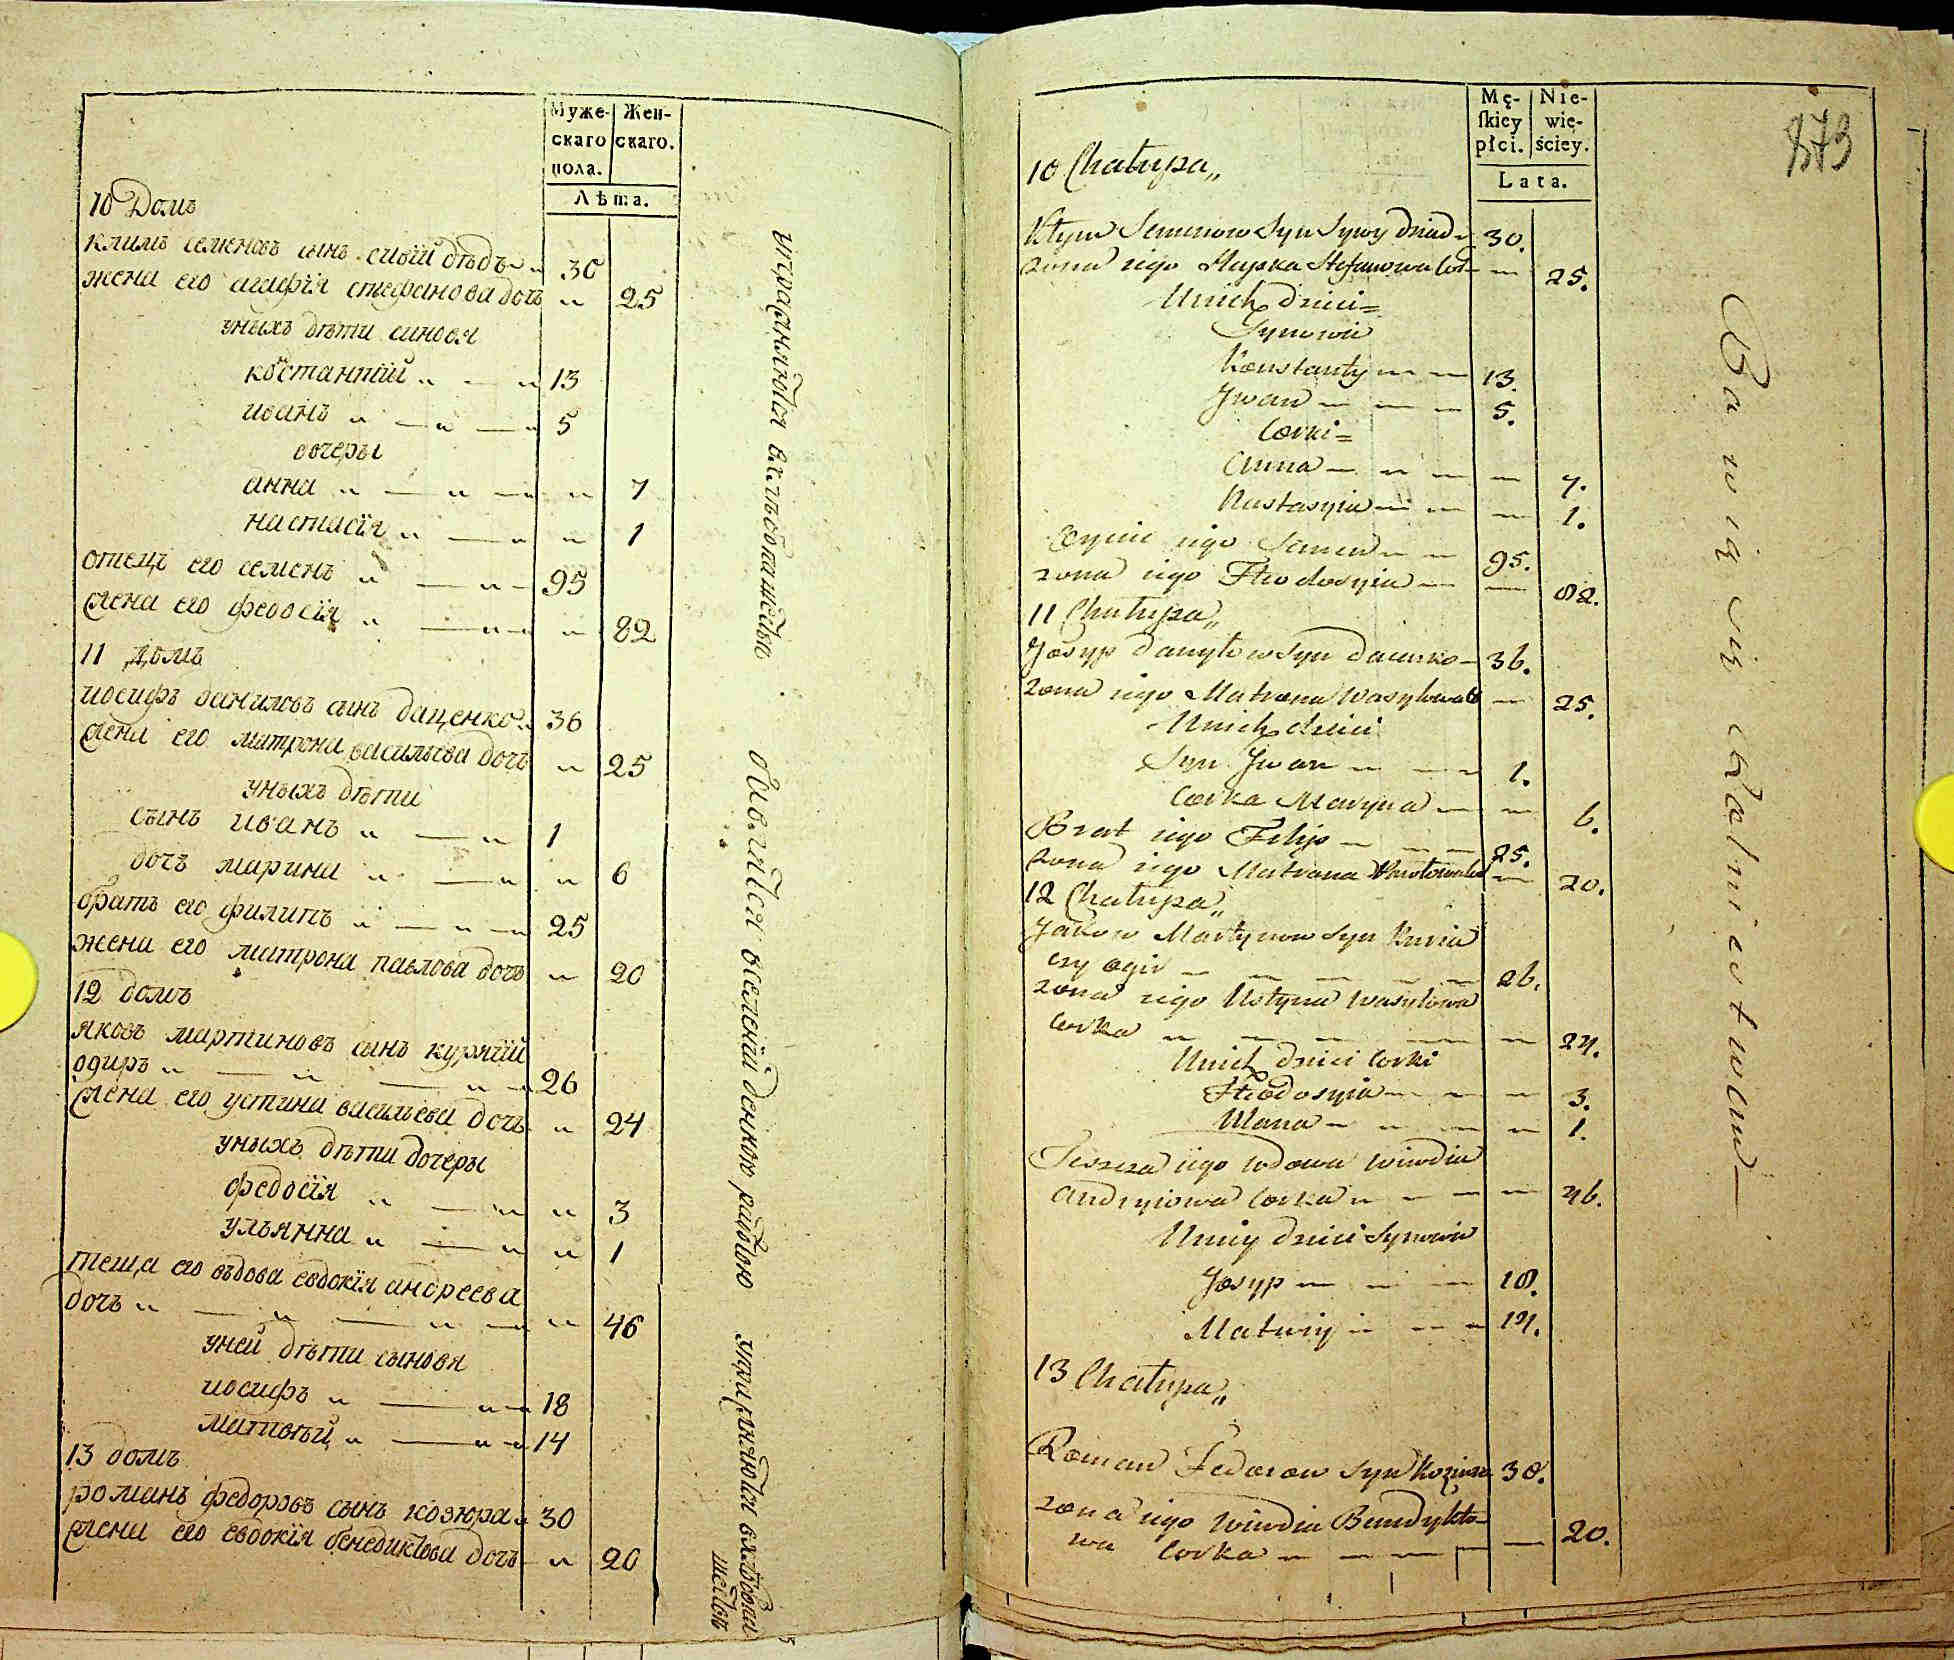 Муже-
скаго
пола.
Жен-
скаго.
Лѣта.
10 Домъ
климъ семеновъ сынъ сивій дѣдъ 30
жена его агафія стефанова дочъ 25
уныхъ дѣти синовя
костантій 13
иванъ 5
дочеры
анна 7
настасія 1
отецъ его семенъ 95
жена его федосія 82
11 домъ
иосифъ даниловъ сынъ даценко 36
жена его матрона василиева дочъ 25
уныхъ дѣти
сынъ иванъ 1
дочъ марина 6
братъ его филипъ 25
жена его матрона павлова дочъ 20
12 домъ
яковъ мартиновъ сынъ курячій
одиръ 26
жена его устина васильева дочъ 24
уныхъ дѣти дочеры
федосія 3
ульянна 1
теща его вдова евдокія андреева
дочъ 46
уней дѣти сыновя
иосифъ 18
матвѣй 14
13 домъ
романъ федоровъ сынъ козюра 30
жена его евдокія бенедиктова дочъ 20
упражняются
упражняются
Mę-
skiey
płci.
Nie-
wię-
ściey.
Lata.
873
10 Chałupa
Kłym Semenow Syn Sywy Dziad 30.
żona iego Hapka Stefanowa Cor 25.
Unich dzieci
Synowie
Konstanty 13.
Jwan 5.
Corki
Anna 7.
Nastasyia 1.
Oyciec iego Semen 95.
żona iego Fteodosyia 82.
11 Chałupa
Josyp Danyłow Syn Dacenko 36.
żona iego Matrona Wasylowa C 25.
Unich dzieci
Syn Jwan 1.
Corka Maryna 6.
Brat iego Filip 25.
żona iego Matrona 20.
12 Chałupa
Jakow Martynow Syn Kuria
czy 26.
żona iego Ustyna Wasylowa
Corka 24.
Unich dzieci Corki
Fteodosyia 3.
Ulana 1.
Teszcza iego wdowa Wiwdia
Andryiowa Corka 46.
Uniey dzieci Synowie
Josyp 18.
Matwiy 14.
13 Chałupa
Roman Fedorow Syn Koziura 30.
żona iego Wiwdia Benedykto-
wa Corka 20.
Bawią się Rolnictwem